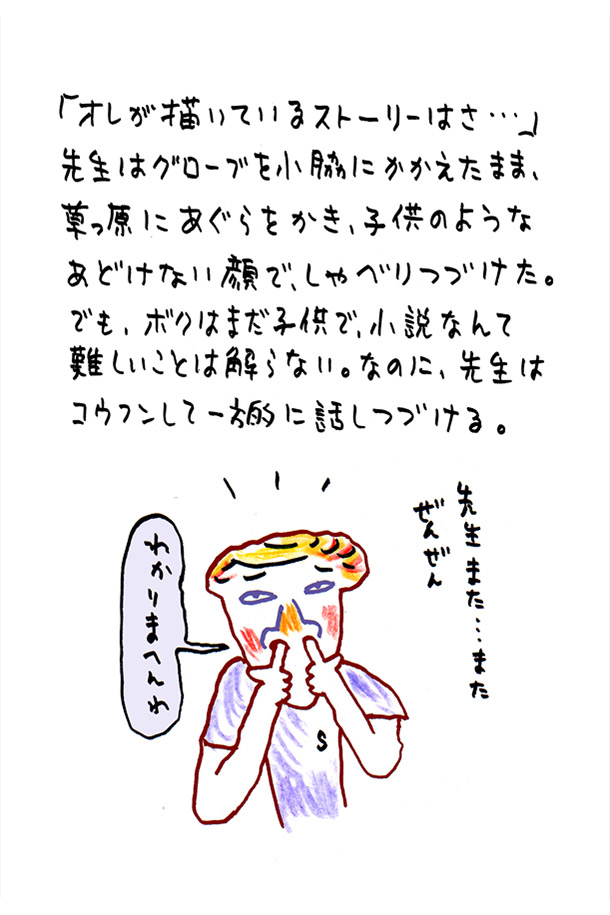 「オレが描いているストーリーはさ…」
先生はグローブを小脇にかかえたまま、
草っ原にあぐらをかき、子供のような
あどけない顔で、しゃべりつづけた。
でも、ボクはまだ子供で、小説なんて
難しいことは解らない。なのに、先生は
コウフンして一方的に話しつづける。
先生また…また
ぜんぜん
わかりまへんわ
S